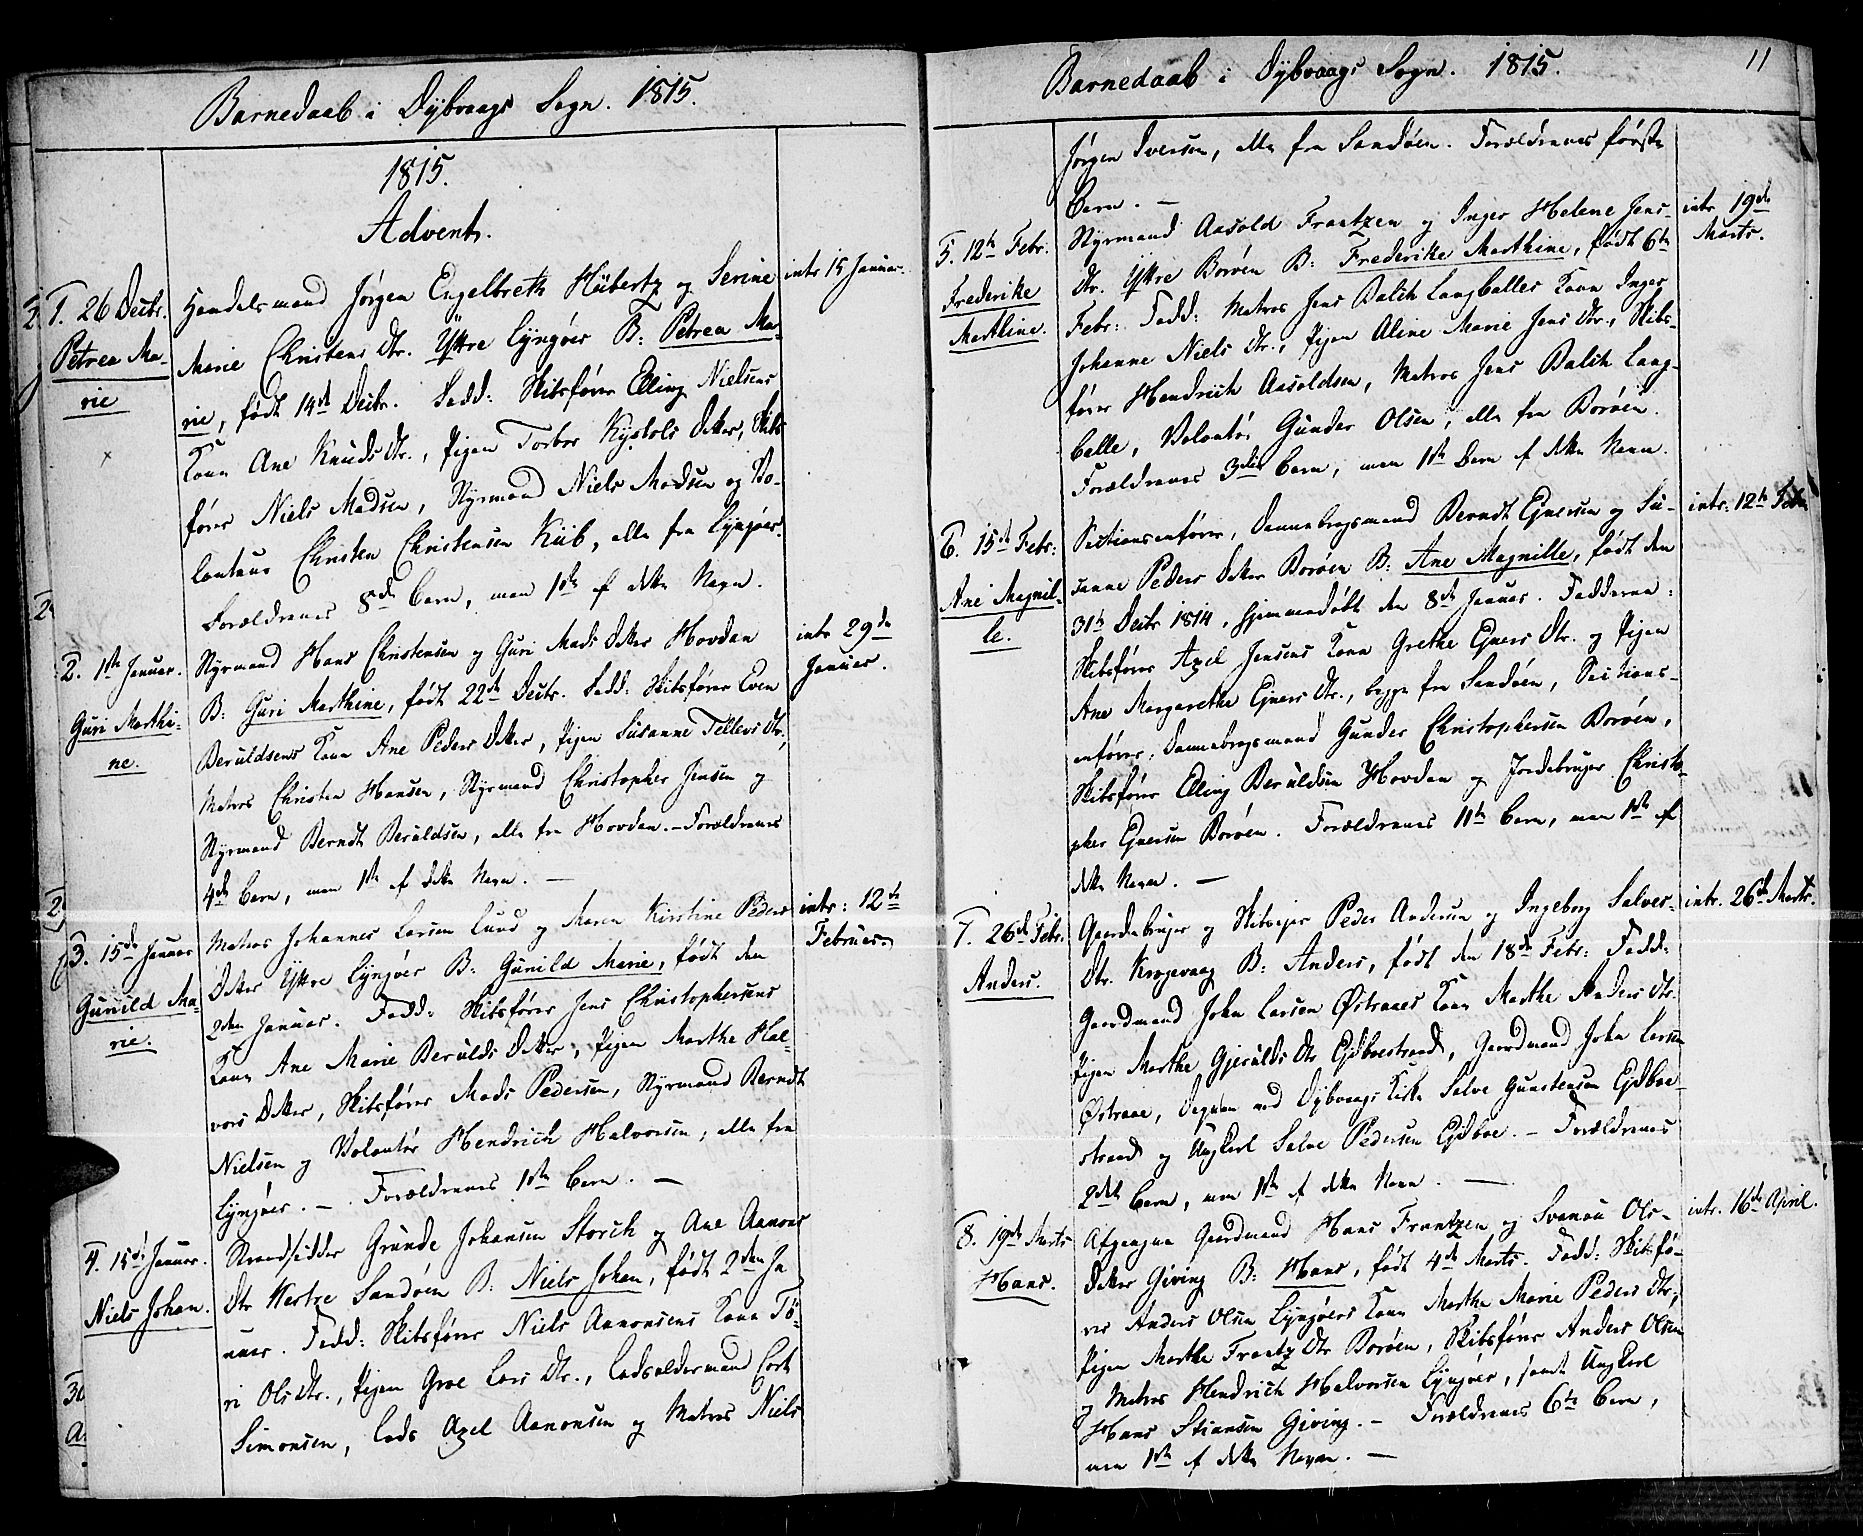 Barnedaab i Dybvaags Sogn. 1815.
1815.
Advent.
1. 26 Decbr.
Petrea Ma-
rie
Handelsmand Jørgen Engelbreth Hübertz og Serine
Marie Christens Dtr. Yttre Lyngøer B: Petrea Ma-
rie, født 14de Decbr. Fadd: Skibsfører Elling Nielsens
Kone Ane Knuds Dtr., Pigen Torbor Kystols Datter, Skibs
fører Niels Madsen, Styrmand Niels Madsen og Vo-
lonteur Christen Christensen Küb, alle fra Lyngøer.
Forældrenes 8de Barn, men 1ste af dette Navn.
intr 15 Januar.
2. 1ste Januar.
Guri Marthi-
ne.
Styrmand Hans Christensen og Guri Mads Datter Hovdan
B: Guri Marthine, født 22de Decbr. Fadd: Skibsfører Even
Beruldsens Kone Ane Peders Datter, Pigen Susanne Tellevs Dtr,
Matros Christen Hansen, Styrmand Christopher Jensen og
Styrmand Berndt Beruldsen, alle fra Hovdan. – Forældrenes
4de Barn, men 1ste af dette Navn. –
intr 29de
Januar.
3. 15de Januar
Gunild Ma-
rie.
Matros Johannes Larsen Lund og Maren Kirstine Peders
Datter Yttre Lyngøer B: Gunild Marie, født den
2den Januar. Fadd: Skibsfører Jens Christophersens
Kone Ane Marie Berulds Datter, Pigen Marthe Hal-
vors Datter, Skibsfører Mads Pedersen, Styrmand Berndt
Nielsen og Volontør Hendrich Halvorsen, alle fra
Lyngøer. – Forældrenes 1ste Barn. –
intr: 12te
Februar.
4. 15de Januar.
Niels Johan.
Strandsidder Grunde Johansen Storch og Ane Aanons
Dtr Vestre Sandøen B: Niels Johan, født 2den Ja
nuar. Fadd: Skibsfører Niels Aanonsens Kone To-
ri Ols Dtr., Pigen Groe Lars Dtr., Lodsoldermand Cort
Simonsen, Lods Axel Aanonsen og Matros Niels
Barnedaab i Dybvaags Sogn. 1815.
11
Jørgen Iversen, alle fra Sandøen. Forældrenes første
Barn. –
5. 12te Febr.
Frederike
Marthine.
Styrmand Aasold Frantzen og Inger Helene Jens-
Dtr. Yttre Borøen B: Frederike Marthine, født 6te
Febr: Fadd: Matros Jens Balch Langballes Kone Inger
Johanne Niels Dtr., Pigen Aline Marie Jens Dtr., Skibs-
fører Hendrich Aasoldsen, Matros Jens Balch Lang-
balle, Volontør Gunder Olsen, alle fra Borøen.
Forældrenes 3die Barn, men 1ste Barn af dette Navn.
intr 19de
Marts.
6. 15de Febr:
Ane Magnil-
le.
Sectionsanfører, Dannebrogsmand Berndt Ejnersen og Su-
sanne Peders Datter Borøen B: Ane Magnille, født den
31te Decbr 1814, hjemmedøbt den 8de Januar. Fadderne:
Skibsfører Axel Jensens Kone Grethe Ejners Dtr. og Pigen
Ane Margarethe Ejners Dtr., begge fra Sandøen, Sections-
anfører, Dannebrogsmand Gunder Christophersen Borøen,
Skibsfører Elling Beruldsen Hovdan og Jordebruger Christo-
pher Ejnersen Borøen. Forældrenes 11te Barn, men 1ste af
dette Navn. –
intr: 12te Febr
7. 26de Febr.
Anders.
Gaardebruger og Skibsejer Peder Andersen og Ingeborg Salves-
Dtr. Krogevaag B: Anders, født den 18de Febr: Fadd:
Gaardmand John Larsen Østraaes Kone Marthe Anders Dtr.
Pigen Marthe Gjerulds Dtr Ejdboestrand, Gaardmand John Larsen
Østraae, Degnen ved Dybvaags Kirke Salve Gunstensen Ejdboe-
strand og Ungkarl Salve Pedersen Ejdboe. – Forældrenes
2det Barn, men 1ste af dette Navn. –
intr. 26de Marts.
8. 19de Marts
Hans.
Afgangne Gaardmand Hans Frantzen og Svanau Ols-
Datter Giving B: Hans, født 4de Marts. Fadd: Skibsfø-
rer Anders Olsen Lyngøers Kone Marthe Marie Peders Dtr,
Pigen Marthe Frantz Dtr Borøen, Skibsfører Anders Olsen
og Matros Hendrich Halvorsen Lyngøer, samt Ungkarl
Hans Stiansen Giving. – Forældrenes 6te Barn,
men 1ste af dette Navn. –
intr. 16de April.